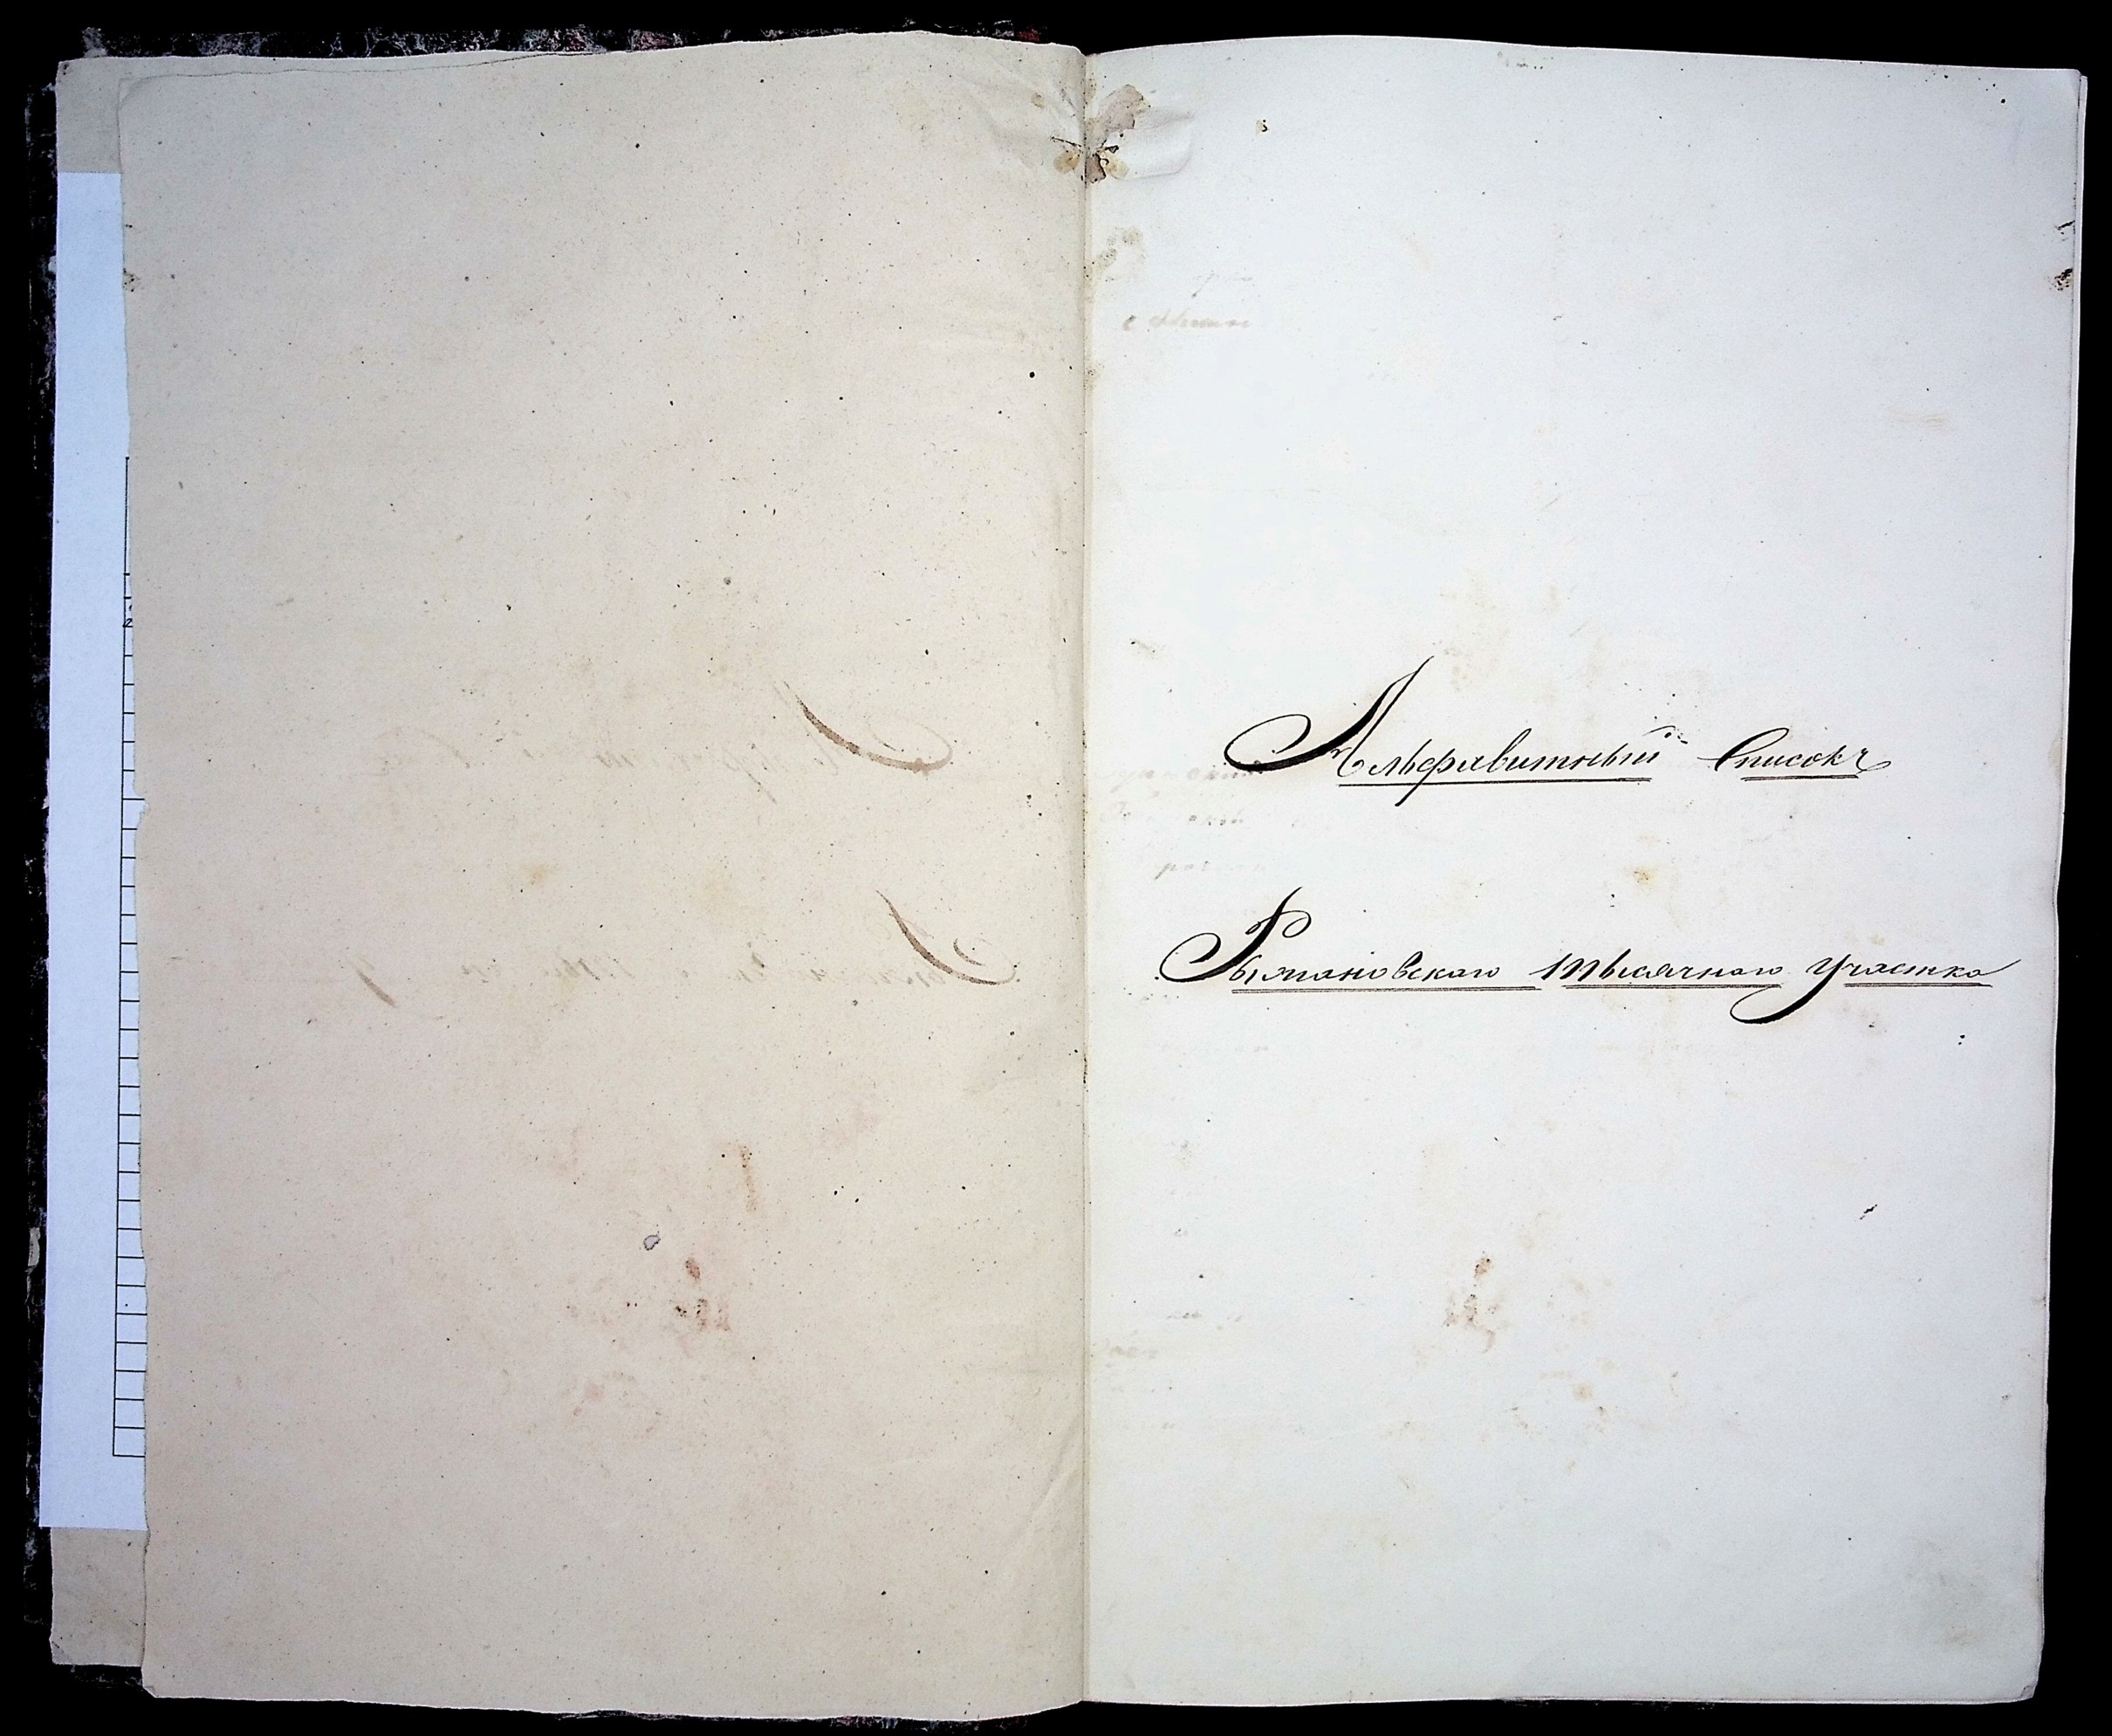 Альфавитный Списокъ
Рымановскаго тысячнаго Участка